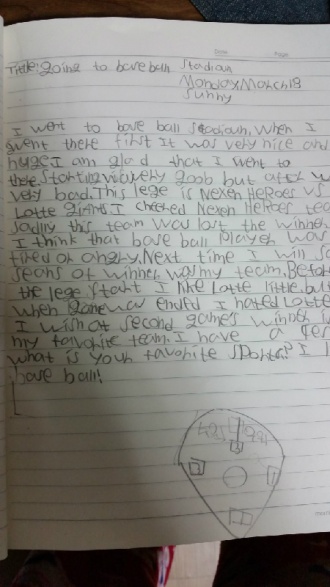 Title: going to base ball Stadium
Monday, March 18
Sunny
I went to base ball Stadium. When I
went there first It was very nice and
huge I am glad that I went to
there. Starting was very goob but after w
very bad. This lege is Nexen HeRoes vs
Lotte giants I cheered Nexen HeRoes tea
sadly this team was lost the winner.
I think that base ball player was
tired or angry. Next time I will
of winner was my team. Before
the lege start I like Lotte little. but
when game was ended I hated Lotte
I wish at second games winner is
my favorite team. I have a
what is your favorite sports? I l
base ball!